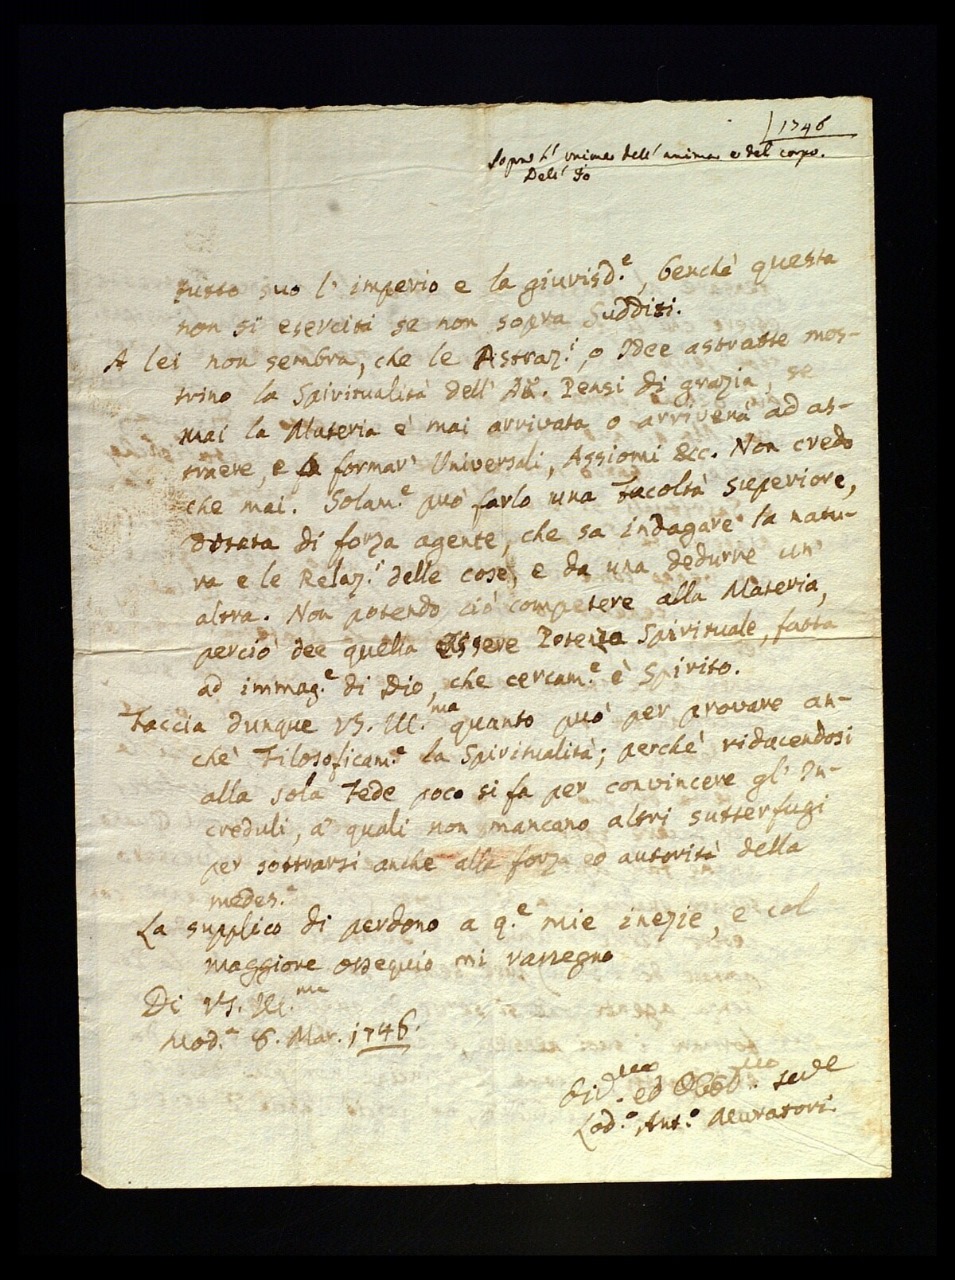 1746
Sopra l' unione dell' anima e del corpo.
Dell' Io
tutto suo l' imperio e la giurisd.e, benchè questa
non si eserciti se non sopra Sudditi.
A lei non sembra, che le Astraz.i, o Idee astratte mos-
trino la Spiritualità dell' A. Pensi di grazia, se
mai la Materia è mai arrivata o arriverà ad as-
traere, e a formar' Universali, Assiomi &c. Non credo
che mai. Solam.e può farlo una Facoltà superiore,
dotata di forza agente, che sa indagare la natu-
ra e le Relaz.i delle cose, e da una dedurne un'
altra. Non potendo ciò competere alla Materia,
perciò dee quella essere Potenza Spirituale, fatta
ad immag.e di Dio, che certam.e è Spirito.
Faccia dunque VS. Ill.ma quanto può per provare an-
che Filosoficam.e la Spiritualità; perchè riducendosi
alla sola Fede poco si fa per convincere gl' In-
creduli, a' quali non mancano altri sutterfugi
per sottrarsi anche alla forza ed autorità della
medes.a
La supplico di perdono a q.e mie inezie, e col
maggiore ossequio mi rassegno
Di VS. Ill.ma
Mod.a 8. Mar. 1746.
Div.mo ed Obbl.mo serv.e
Lod.o Ant.o Muratori